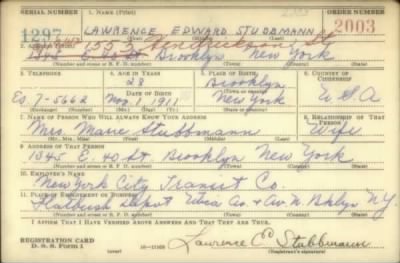 SERIAL NUMBER 1. NAME (Print) ORDER NUMBER
1297 LAWRENCE EDWARD STUBBMANN 2003
(First) (Middle) (Last)
2. ADDRESS (Print)
1553
1345 E. 40 St Brooklyn New York
(Number and street or R. F. D. number) (Town) (County) (State)
3. TELEPHONE 4. AGE IN YEARS 5. PLACE OF BIRTH 6. COUNTRY OF CITIZENSHIP
28 Brooklyn
DATE OF BIRTH (Town or county)
Es. 7-5662 Nov. 1 1911 New York U S A
(Exchange) (Number) (Mo.) (Day) (Yr.) (State or country)
7. NAME OF PERSON WHO WILL ALWAYS KNOW YOUR ADDRESS 8. RELATIONSHIP OF THAT PERSON
Mrs. Marie Stubbmann Wife
(Mr., Mrs., Miss) (First) (Middle) (Last)
9. ADDRESS OF THAT PERSON
1345 E. 40 St Brooklyn New York
(Number and street or R. F. D. number) (Town) (County) (State)
10. EMPLOYER'S NAME
New York City Transit Co.
11. PLACE OF EMPLOYMENT OR BUSINESS
Flatbush Depot Utica Av. & Av. N. Bklyn N.Y.
(Number and street or R. F. D. number) (Town) (County) (State)
I AFFIRM THAT I HAVE VERIFIED ABOVE ANSWERS AND THAT THEY ARE TRUE.
REGISTRATION CARD
D. S. S. Form 1 (over) Lawrence E. Stubbmann
(Registrant's signature)